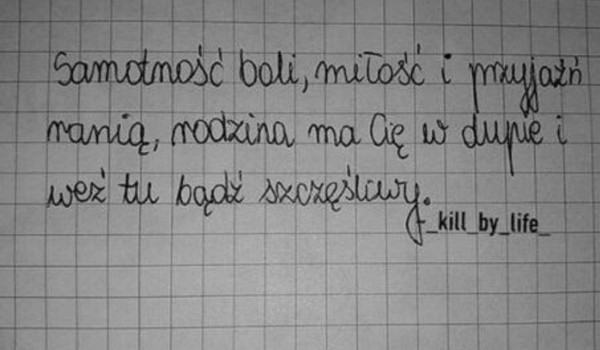 Samotność boli, miłość i przyjaźń
ranią, rodzina ma Cię w dupie i
weź tu bądź szczęśliwy.
_kill_by_life_